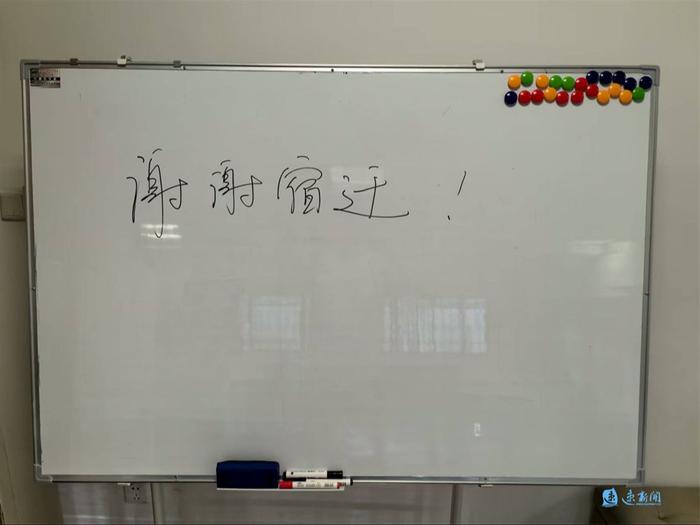 谢谢宿迁！
速新闻